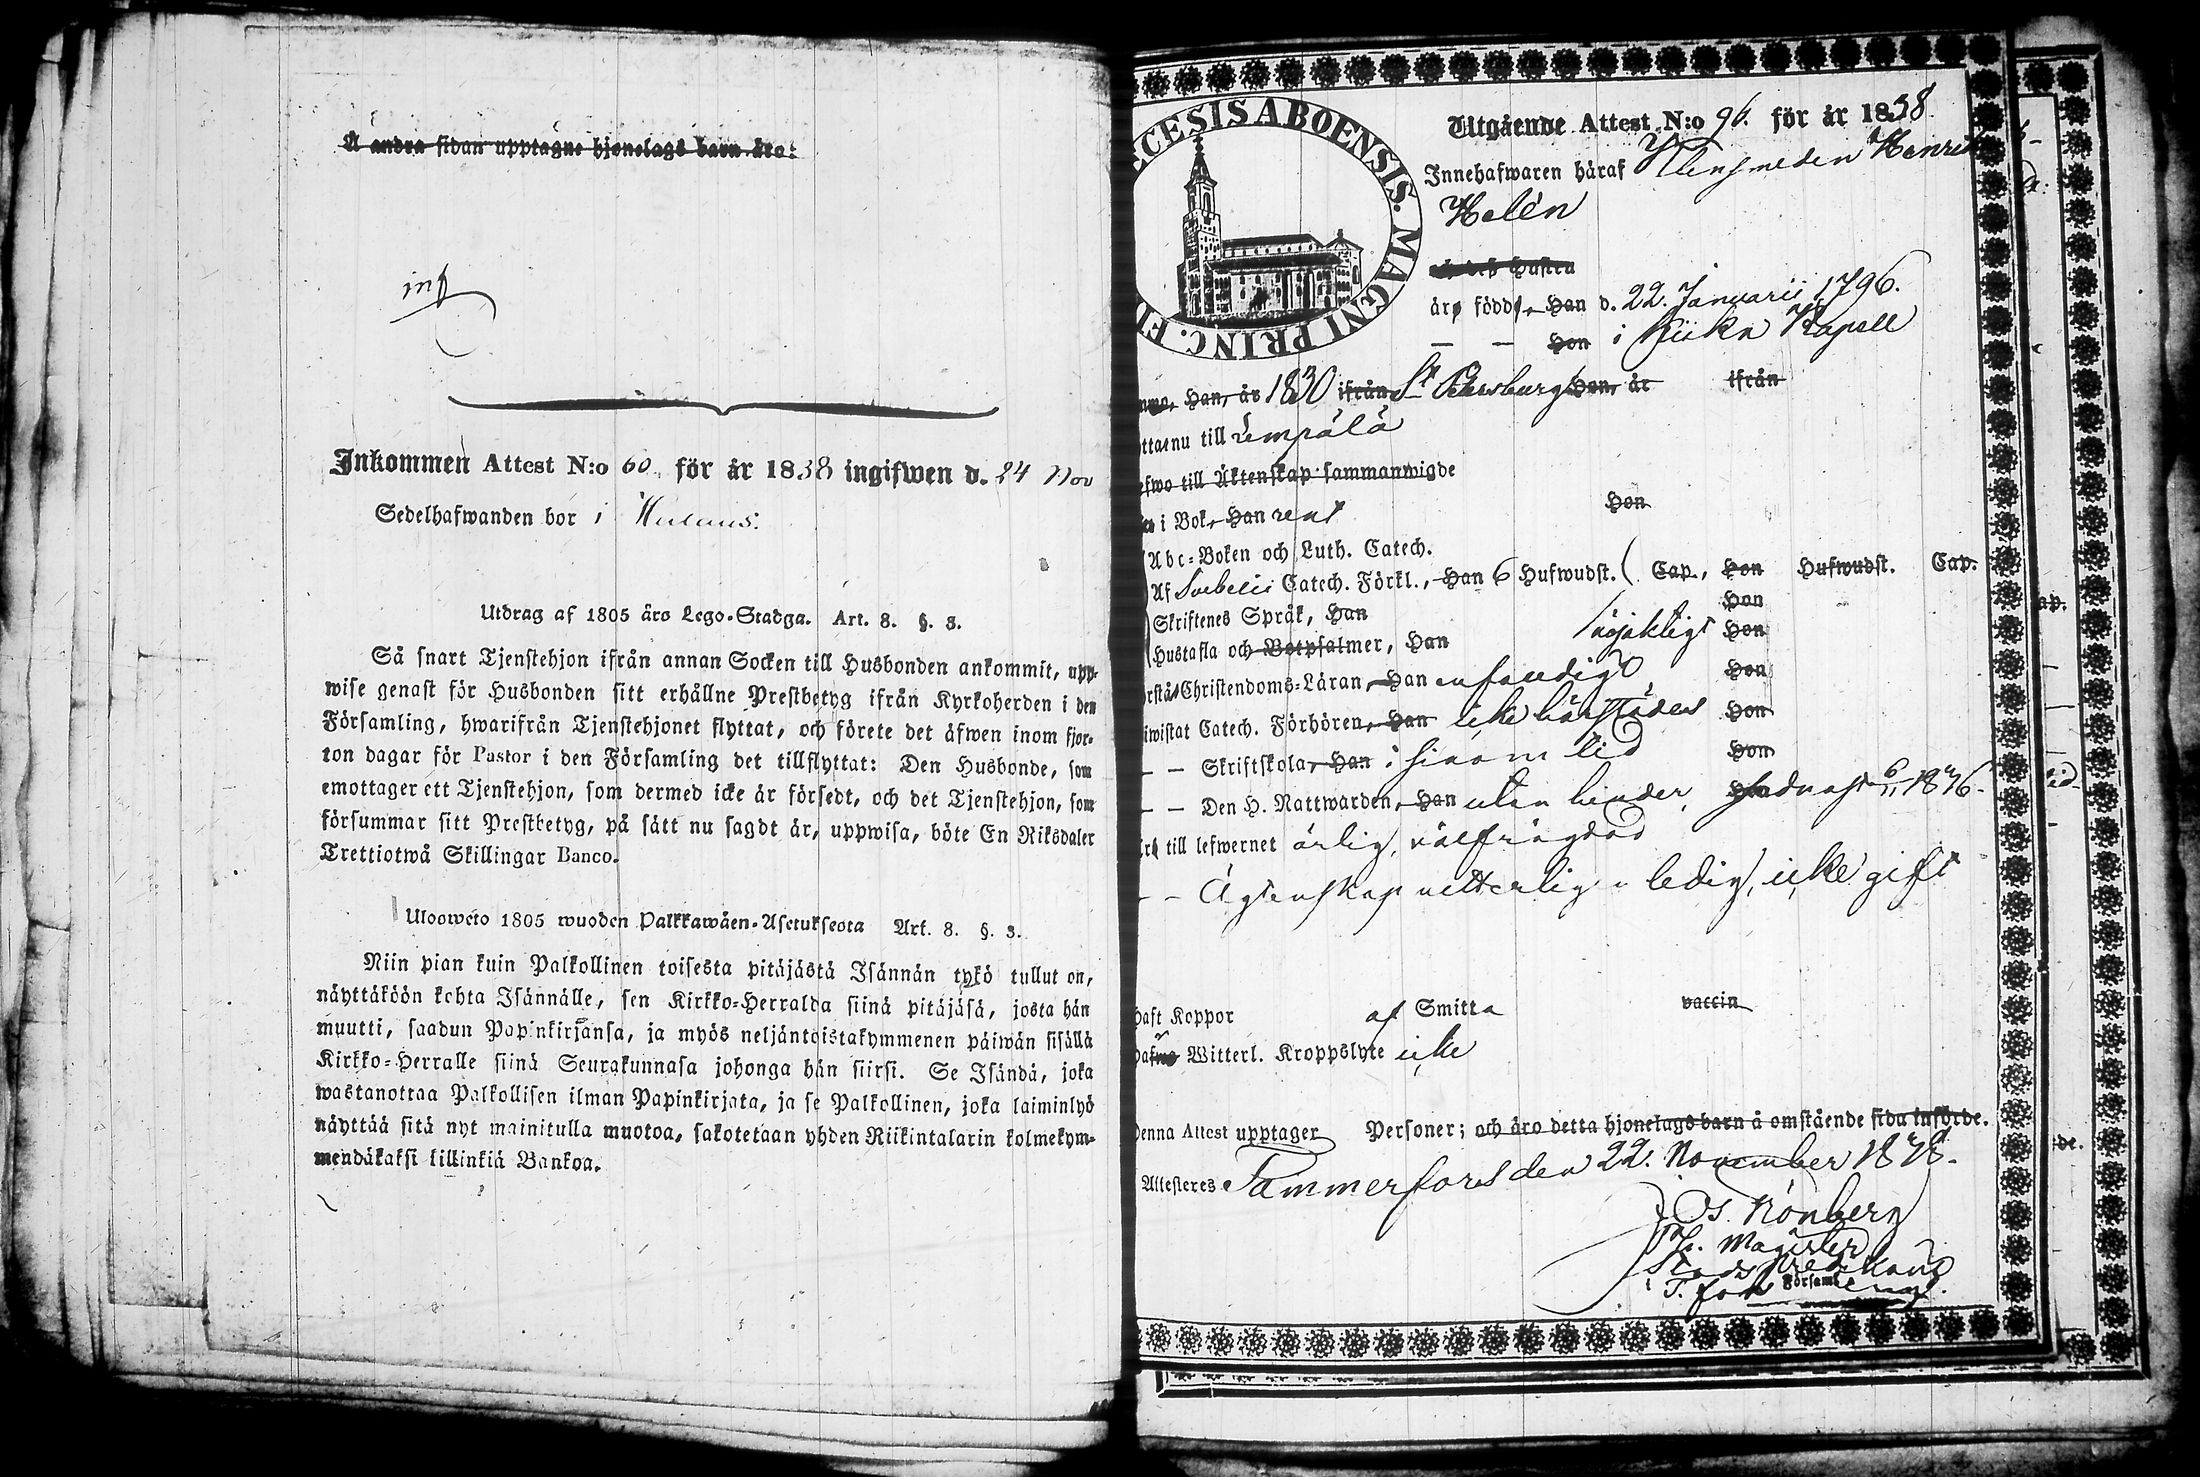 Å andra sidan upptagne hjonelags barn äro:
inf
Inkommen Attest N:o 60 för år 1838 ingifwen d. 24 Nov
Sedelhafwanden bor i
Utdrag af 1805 års Lego-Stadga. Art. 8. §. 3.
Så snart Tjenstehjon ifrån annan Socken till Husbonden ankommit, upp-
wise genast för Husbonden sitt erhållne Prestbetyg ifrån Kyrkoherden i den
Församling, hwarifrån Tjenstehjonet flyttat, och förete det äfwen inom fjor-
ton dagar för Pastor i den Församling det tillflyttat: Den Husbonde, som
emottager ett Tjenstehjon, som dermed icke är försedt, och det Tjenstehjon, som
försummar sitt Prestbetyg, på sätt nu sagdt är, uppwisa, böte En Riksdaler
Trettiotwå Skillingar Banco.
Uloswеto 1805 wuoden Palkkawäen-Asetuksesta Art. 8. §. 3.
Niin pian kuin Palkollinen toisesta pitäjästä Isännän tykö tullut on,
näyttäköön kohta Isännälle, sen Kirkko-Herralda siinä pitäjäsä, josta hän
muutti, saadun Papinkirjansa, ja myös neljäntoistakymmenen päiwän sisällä
Kirkko-Herralle siinä Seurakunnasa johonga hän siirsi. Se Isändä, joka
wastanottaa Palkollisen ilman Papinkirjata, ja se Palkollinen, joka laiminlyö
näyttää sitä nyt mainitulla muotoa, sakotetaan yhden Riikintalarin kolmekym-
mendäkaksi killinkiä Bankoa.
CESIS ABOENSIS. MAGNI PRINC. FI
Utgående Attest N:o 96. för år 1838.
Innehafwaren häraf Klensmeden Henrik
Helén
och dess Hustru
äro födde, Han d. 22. Januarii 1796.
— — Hon i Kapell
Han, år 1830 ifrån St Petersburg Hon, år ifrån
ttar nu till Lempälä
efwo till Äktenskap sammanwigde
i Bok, Han rent Hon
Abc-Boken och Luth. Catech.
Af Svebelii Catech. Förkl., Han 6 Hufwudst. Cap., Hon Hufwudst. Cap.
Skriftenes Språk, Han Hon
Hustafla och Botpsalmer, Han Hon
rstå Christendoms-Läran, Han enfaudigt Hon
iwistat Catech. Förhören, Han icke härstädes Hon
— — Skriftskola, Han i sinom tid Hon
— — Den H. Nattwarden, Han utan hinder, Hon
till lefwernet ärlig, välfrägdad
— — Ägtenskap vetterlig. ledig, icke gift
haft Koppor af Smitta vaccin
Witterl. Kroppslyte icke
Denna Attest upptager Personer; och äro detta hjonelags barn å omstående sida införde.
Attesteres Tammerfors den 22. November 1838.
Magister
Församl